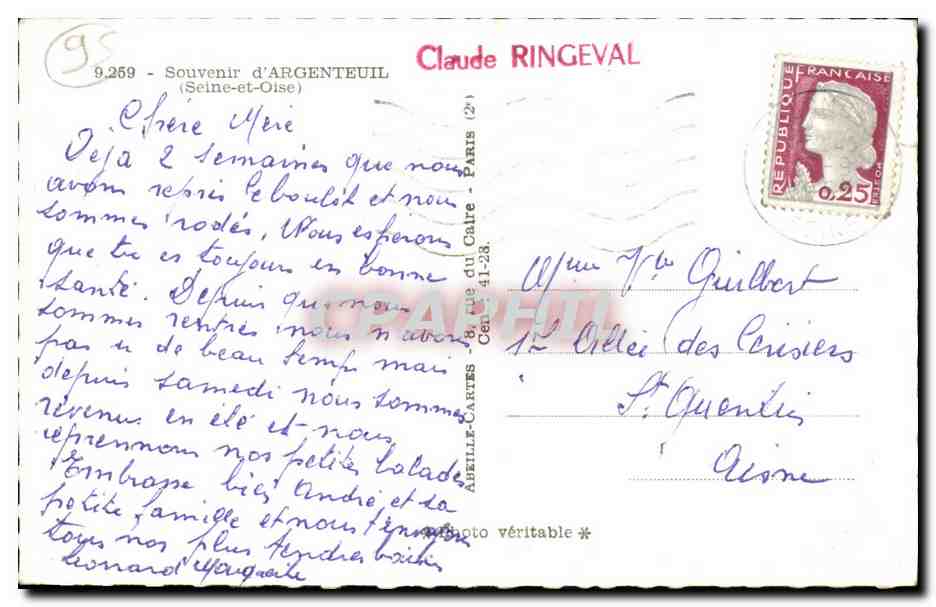 95
9.259 - Souvenir d'ARGENTEUIL
(Seine-et-Oise)
Claude RINGEVAL
RÉPUBLIQUE FRANÇAISE
0,25
Chère Mère
Deja 2 semaines que nous
avons repris le boulot et nous
sommes rodés, Nous esperons
que tu es toujours en bonne
santé. Depuis que nous
sommes rentrés nous n'avons
pas u de beau temps mais
depuis samedi nous sommes
revenus en été et nous
reprennons nos petites balades
Embrasse bien André et sa
petite famille et nous t'envoyons
tous nos plus tendres baisers
Leonard Marguerite
ABEILLE-CARTES - 8, rue du Caire - PARIS (2e)
Cent : 41-23.
CPAPHIL
Mme Vve Guilbert
12 Allée des Cerisiers
St Quentin
Aisne
* Photo véritable *